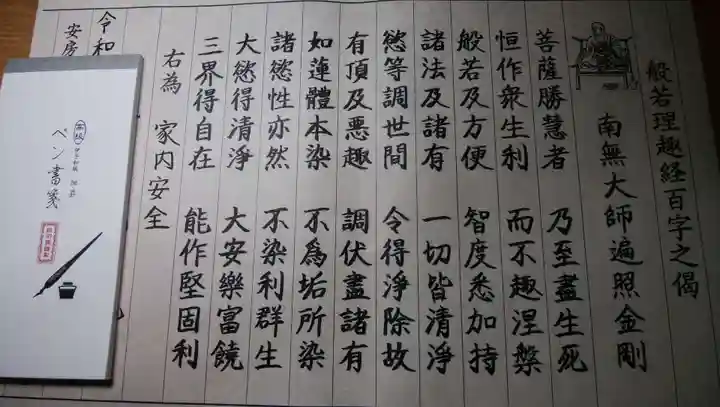 般若理趣経百字之偈
南無大師遍照金剛
菩薩勝慧者 乃至盡生死
恒作衆生利 而不趣涅槃
般若及方便 智度悉加持
諸法及諸有 一切皆清淨
慾等調世間 令得淨除故
有頂及悪趣 調伏盡諸有
如蓮體本染 不爲垢所染
諸慾性亦然 不染利群生
大慾得清淨 大安樂富饒
三界得自在 能作堅固利
右為 家内安全
令和
安房
ペン書箋